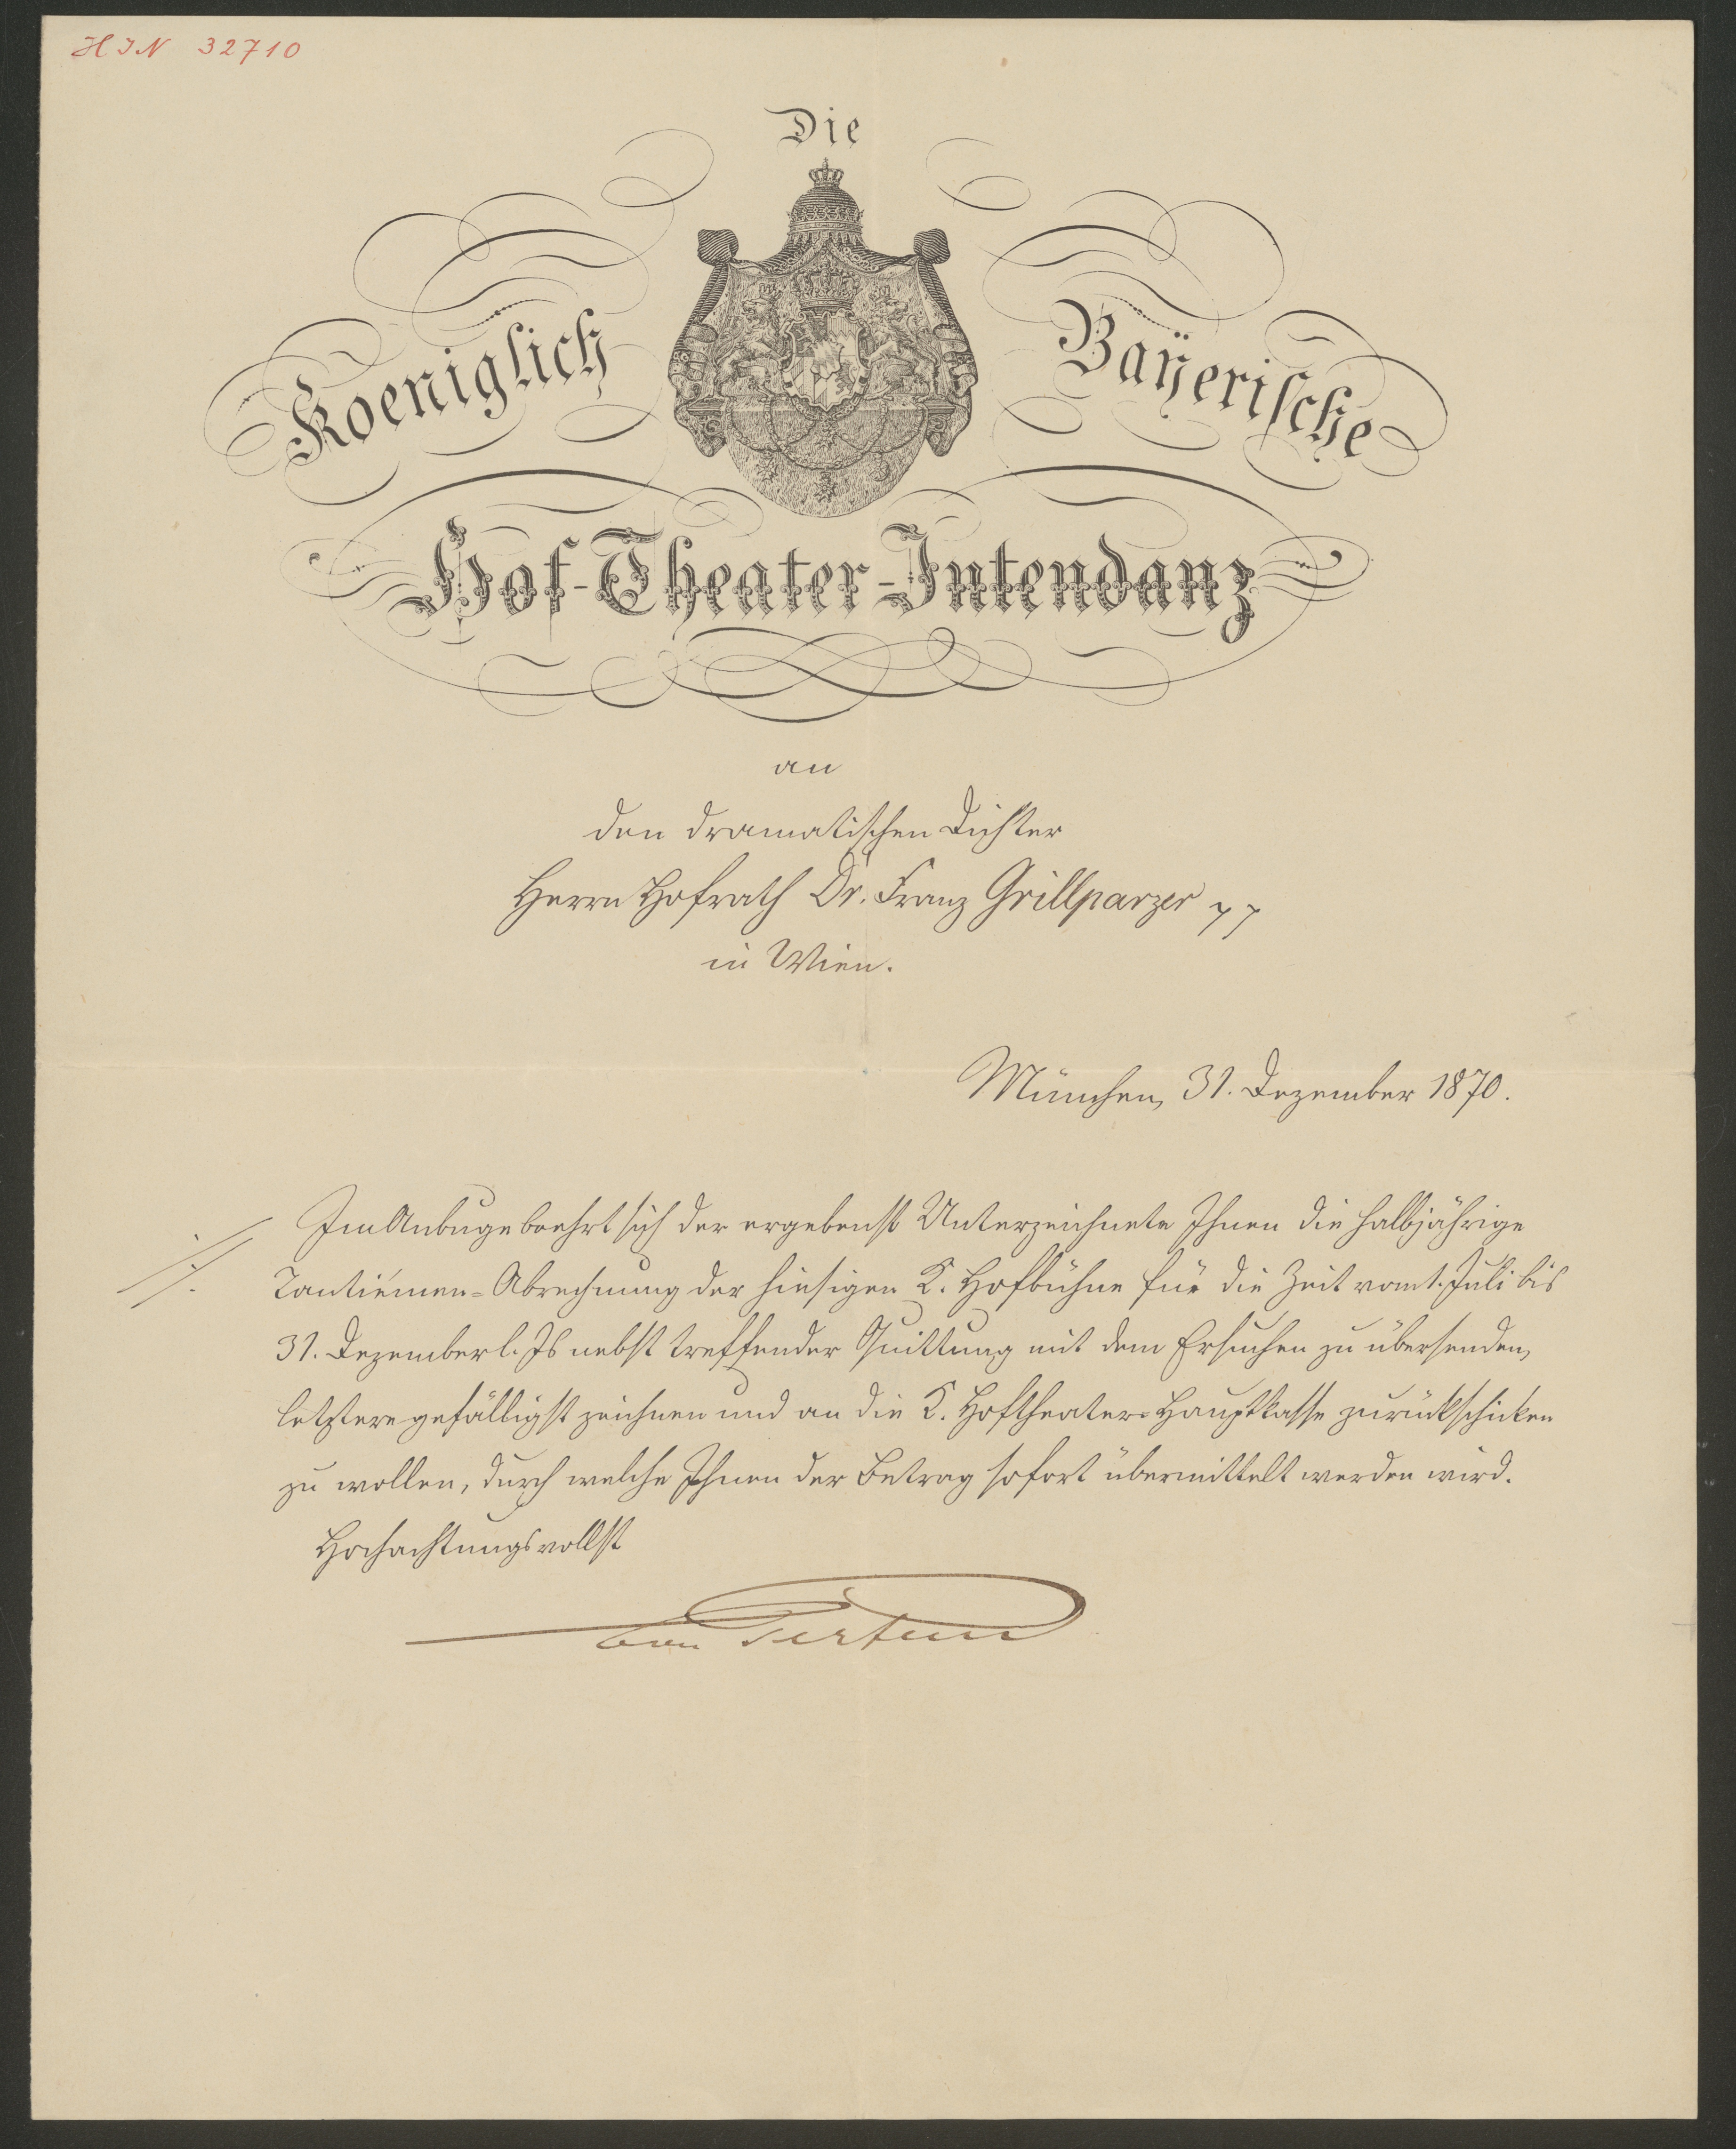 HIN 32710
Die
Koeniglich Bayerische
Hof-Theater-Intendanz
an
den dramatischen Dichter
Herrn Hofrath Dr. Franz Grillparzer
in Wien.
München, 31. Dezember 1870.
Im Anbuge beehrt sich der ergebenst Unterzeichnete Ihnen die halbjährige
Tantièmen-Abrechnung der hiesigen K. Hofbühne für die Zeit vom 1. Juli bis
31. Dezember l. Js nebst treffender Quittung mit dem Ersuchen zu übersenden,
letztere gefälligst zeichnen und an die K. Hoftheater-Hauptkasse zurückschicken
zu wollen, durch welche Ihnen der Betrag sofort übermittelt werden wird.
Hochachtungsvollst